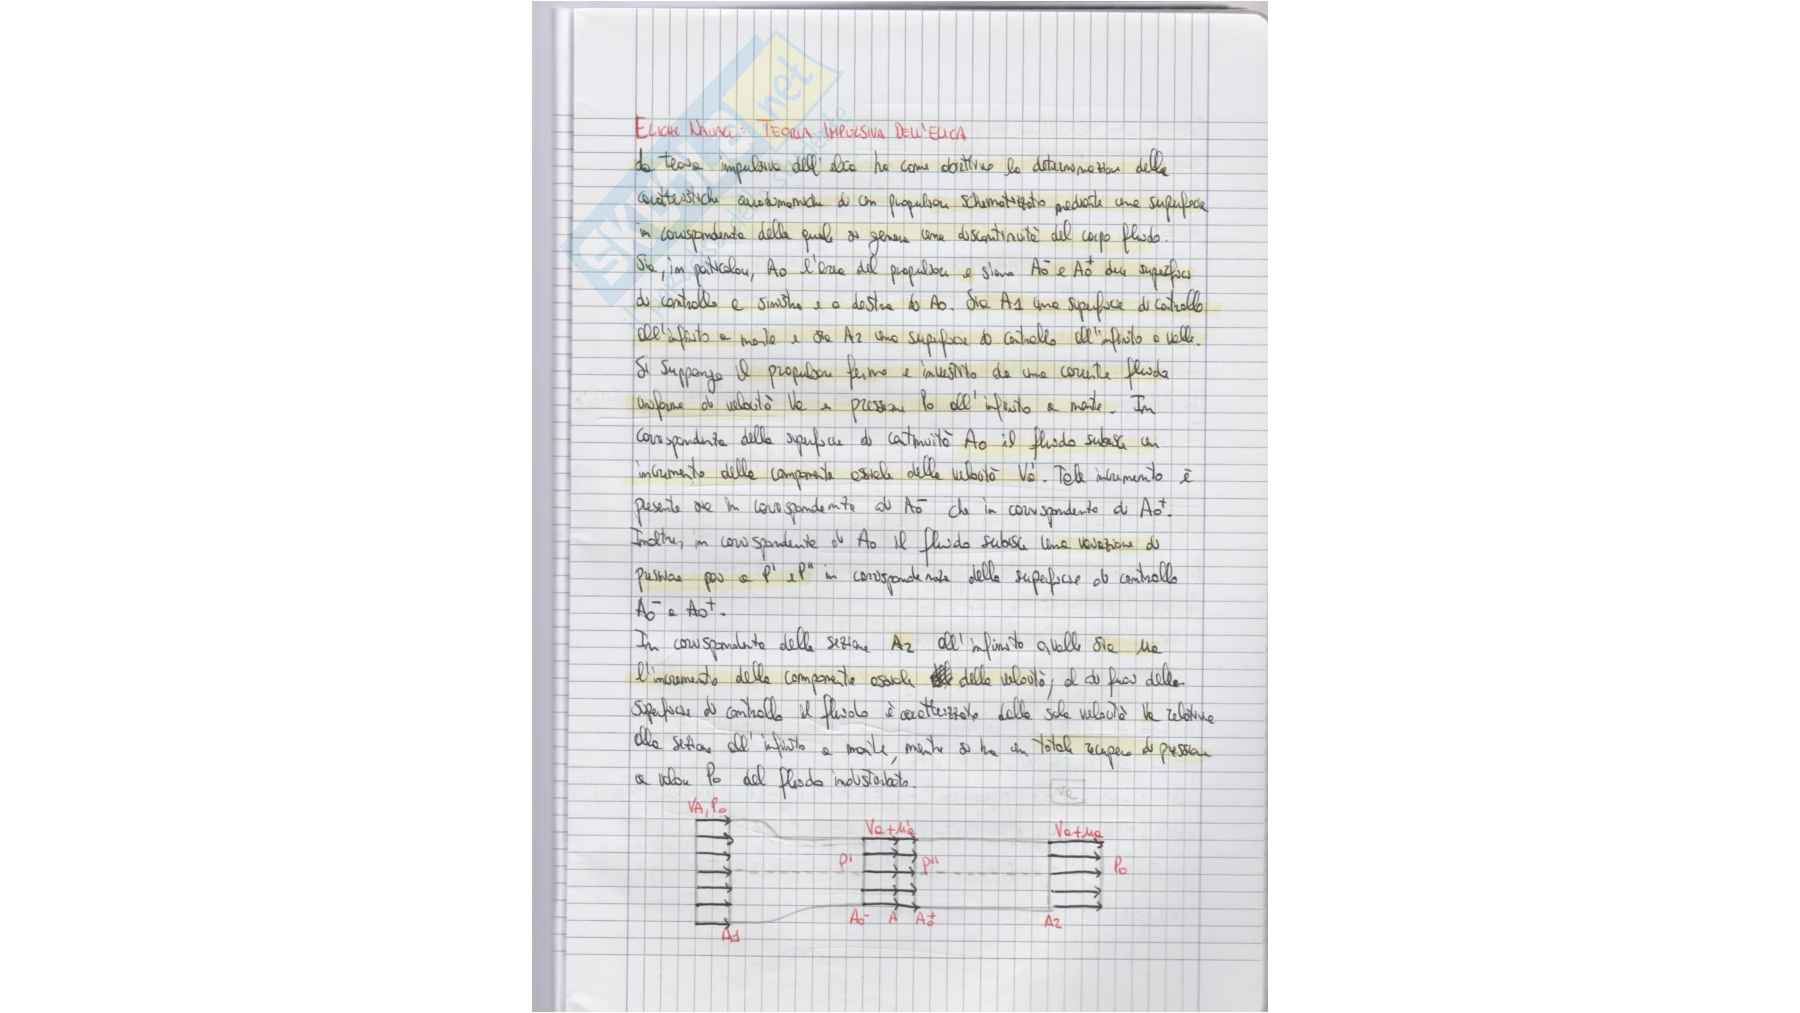 ELICHE NAVALI: TEORIA IMPULSIVA DELL'ELICA
La teoria impulsiva dell'elica ha come obiettivo la determinazione delle
caratteristiche di un propulsore schematizzato mediante una superficie
in corrispondenza della quale si genera una discontinuità del corpo fluido.
Sia, in particolare, A0 l'area del propulsore e siano A0- e A0+ due superfici
di controllo a sinistra e a destra di A0. Sia A1 una superficie di controllo
all'infinito a monte e sia A2 una superficie di controllo all'infinito a valle.
Si suppanga il propulsore fermo e investito da una corrente fluida
uniforme di velocità Va e pressione P0 all'infinito a monte. In
corrispondenza della superficie di continuità A0 il fluido subisce un
incremento della componente assiale della velocità Va'. Tale incremento è
presente sia in corrispondenza di A0- che in corrispondenza di A0+.
Inoltre, in corrispondenza di A0 il fluido subisce una variazione di
pressione pari a P' e P" in corrispondenza delle superficie di controllo
A0- e A0+.
In corrispondenza della sezione A2 all'infinito a valle sia μa
l'incremento della componente assiale della velocità; al di fuori della
superficie di controllo il fluido è caratterizzato dalla sola velocità Va relativa
alla sezione all'infinito a monte, mentre si ha un totale recupero di pressione
a valore P0 del fluido indisturbato.
VA, P0
Va+μ'a
Va+μa
P'
P"
P0
A0-
A
A0+
A2
A1